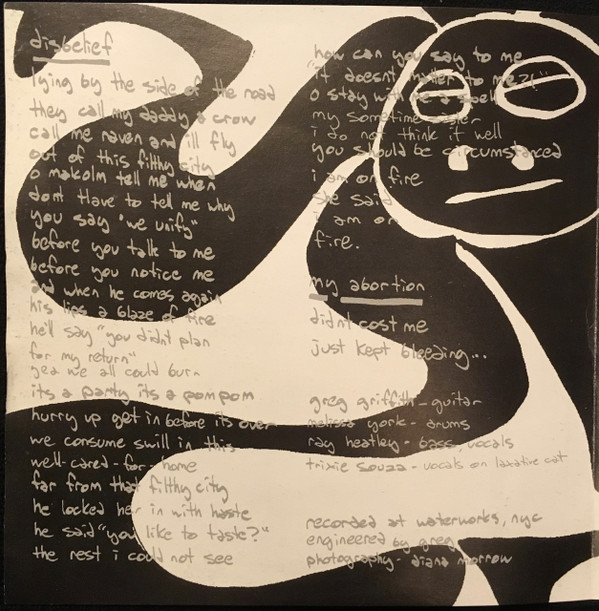 disbelief
lying by the side of the road
they call my daddy a crow
call me raven and ill fly
out of this filthy city
o makolm tell me when
dont Have to tell me why
you say "we unify"
before you talk to me
before you notice me
and when he comes again
his lips a blaze of fire
he'll say "you didn't plan
for my return"
yea we all could burn
its a party its a pom pom
hurry up get in before its over
we consume swill in this
well-cared-for-home
far from that filthy city
he locked her in with haste
he said "you like to taste?"
the rest i could not see
how can you say to me
"it doesn't matter to me?!"
o stay with me a spell
my sometime sister
i do not think it well
you should be circumstanced
i am on fire
she said
i am on
fire.
my abortion
didnt cost me
just kept bleeding...
greg griffith-guitar
melissa york- drums
ray heatley- bass, vocals
trixie souza- vocals on laxative cat
recorded at waterworks, nyc
engineered by greg
photography- diana morrow